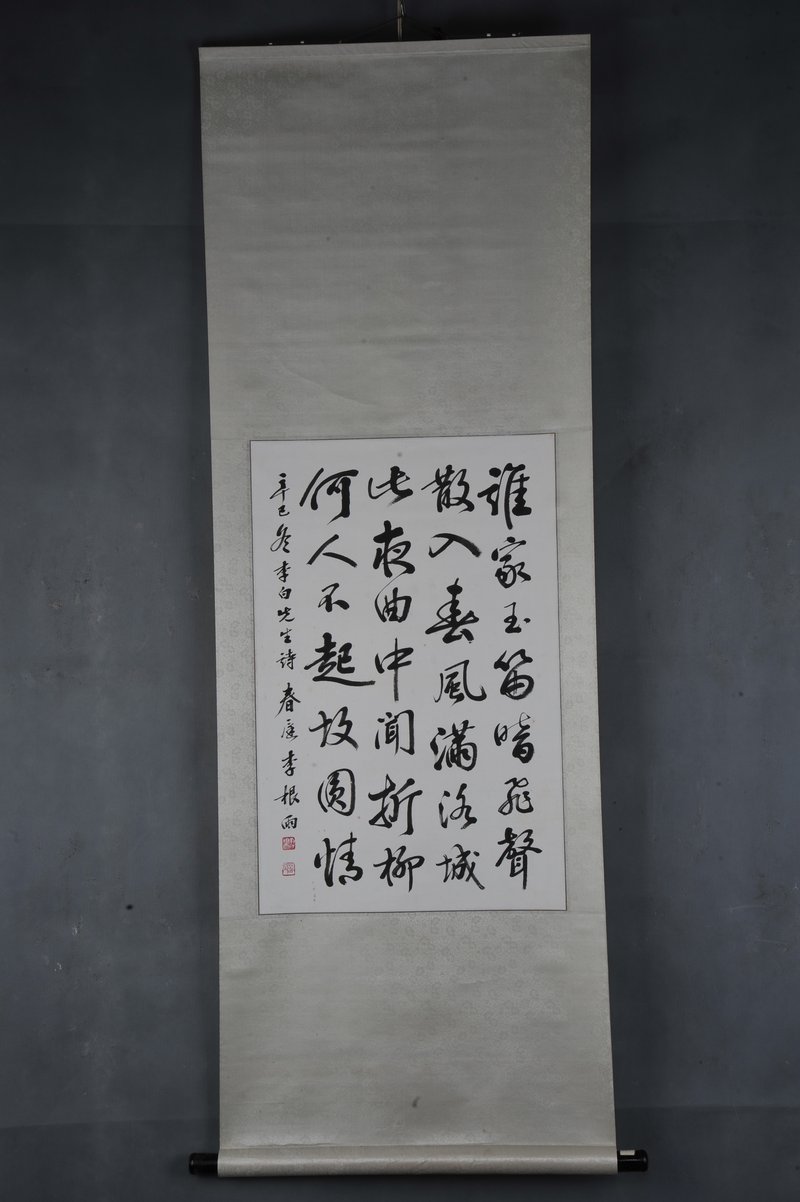 誰家玉笛暗飛聲
散入春風滿洛城
此夜曲中聞折柳
何人不起故圓情
辛巳冬李白先生詩春庭李根雨